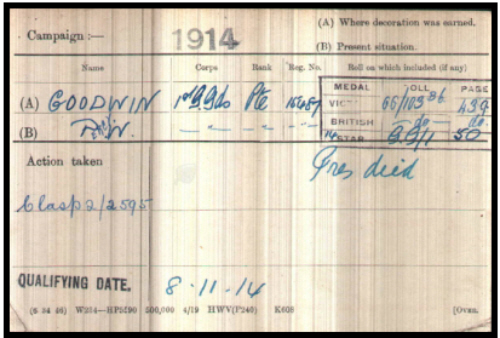 (A) Where decoration was earned.
Campaign :— 1914
(B) Present situation.
Name Corps Rank Reg. No. Roll on which included (if any)
MEDAL ROLL PAGE
(A) GOODWIN 1st G.Gds Pte VICTORY 439
(B) W. BRITISH do do.
14 STAR G.G/1 50
Action taken Pres died
Clasp 2/2595
QUALIFYING DATE. 8.11.14
(6 34 46) W234—HP5590 500,000 4/19 HWV(P240) K608 [Over.